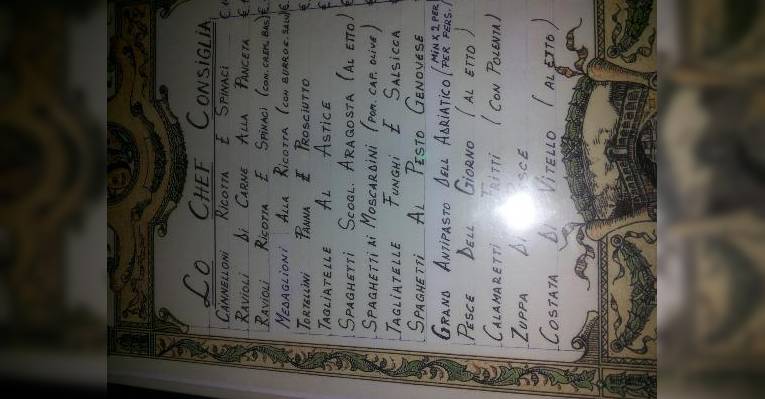 Lo CHEF CONSIGLIA
CANNELLONI RICOTTA E SPINACI €
RAVIOLI DI CARNE ALLA PANCETA €
RAVIOLI RICOTTA E SPINACI (CON.CREMA BAS) €
MEDAGLIONI ALLA RICOTTA (CON BURRO E. SALV) €
TORTELLINI PANNA E PROSCIUTTO
TAGLIATELLE AL ASTICE
SPAGHETTI SCOGL. ARAGOSTA (AL ETTO) €
SPAGHETTI AI MOSCARDINI (POM. CAP. OLIVE) €
TAGLIATELLE FUNGHI E SALSICCA
SPAGHETTI AL PESTO GENOVESE €
GRAND ANTIPASTO DELL ADRIATICO (MIN X 2 PER PER PERS.)
PESCE DELL GIORNO (AL ETTO)
CALAMARETTI FRITTI (CON POLENTA)
ZUPPA DI PESCE
COSTATA DI VITELLO (AL ETTO)